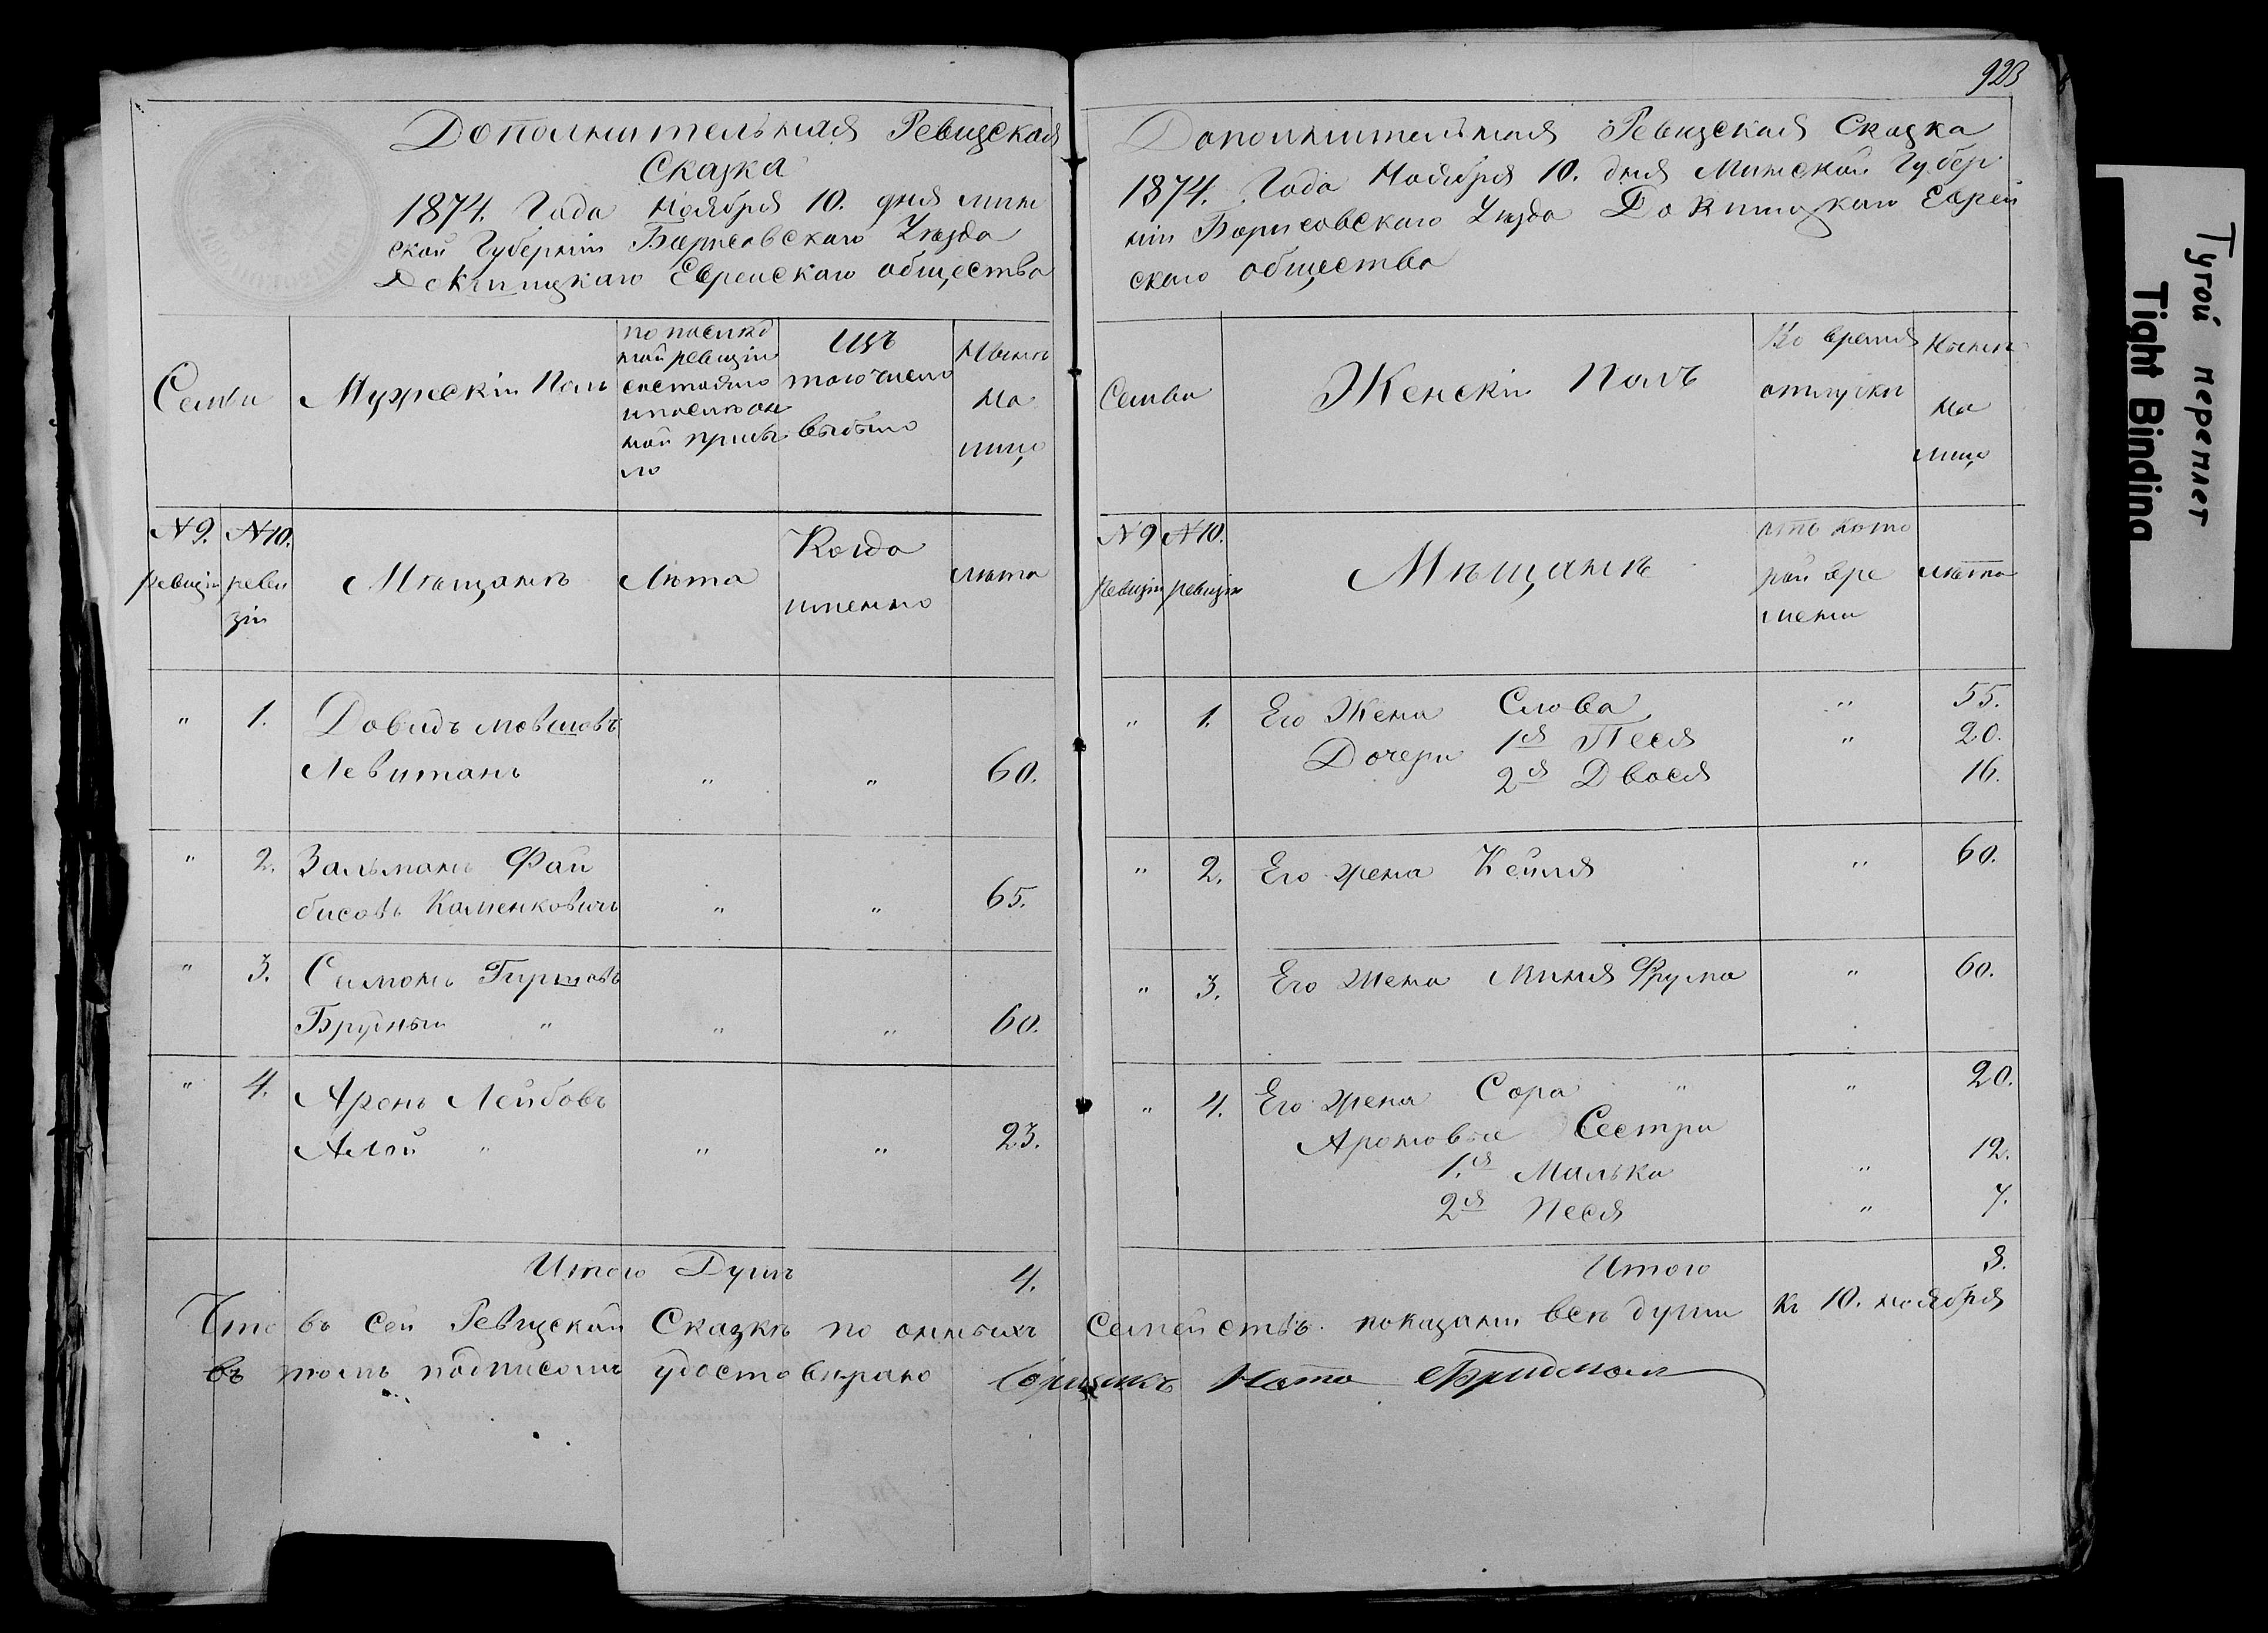 923
Дополнительная Ревизская
Сказка
1874. Года Ноября 10. дня Мин
ской Губерніи Борисовскаго Уезда
Докшицкаго Еврейскаго общества
Семьи
Мужескій Полъ
по послед
ней ревизіи
состояло
и после он
ной прибы
ло
Изъ
того числа
выбыло
Ныне
на
лицо
N 9.
ревизіи
N 10.
реви
зіи
Мещане
Лета
Когда
именно
лета
" 1. Довидъ Мовшовъ
Левитанъ " " 60.
" 2. Зальманъ Фай
бисовъ Каменковичъ " " 65.
" 3. Симонъ Гиршовъ
" " " 60.
" 4. Аронъ Лейбовъ
" " " 23.
Итого Душъ 4.
Дополнительная Ревизская Сказка
1874. Года Ноября 10. дня Минской Губер
ніи Борисовскаго Уезда Докшицкаго Еврей
скаго общества
Семьи
Женскій Полъ
Во время
отлучки
Ныне
на
лицо
N 9
ревизіи
N 10.
ревизіи
Мещане
отъ кото
рой вре
мени
лета
" 1. Его Жена Слова " 55.
Дочери 1я Песя " 20.
2я Двося 16.
" 2. Его жена Кейля " 60.
" 3. Его жена Миня Фрума " 60.
" 4. Его жена Сора " " 20.
Ароновые Сестри
1.я Малька " 12.
2я Песя " 7.
Итого 8.
Что въ сей Ревизской Сказке по онныхъ Семействъ показани все души къ 10. ноября
въ томъ подписомъ удостоверяю Нота Фридман
Тугой переплет
Tight Binding